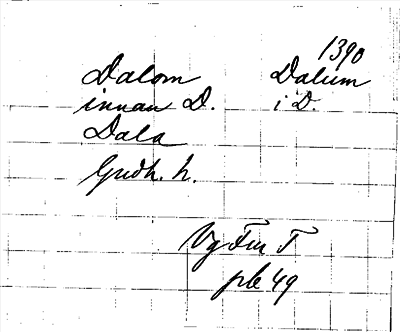 1390
Dalom Dalum
innan D. i D.
Dala
Gudh. h.
Vg Fnr T
plb 49